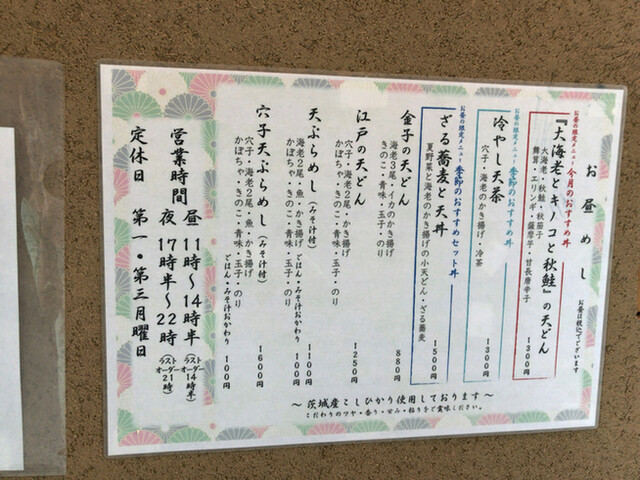 お昼めし
お昼は税込でございます
お昼の限定メニュー 今月のおすすめ丼
『大海老とキノコと秋鮭』の天どん
大海老・秋鮭・秋茄子
舞茸・エリンギ・薩摩芋・甘長唐辛子
1300円
お昼の限定メニュー 季節のおすすめ丼
冷やし天茶
穴子・海老のかき揚げ・冷茶
1300円
お昼の限定メニュー 季節のおすすめセット丼
ざる蕎麦と天丼
夏野菜と海老のかき揚げの小天どん・ざる蕎麦
1500円
金子の天どん
海老3尾・イカのかき揚げ
きのこ・青味・玉子・のり
880円
江戸の天どん
穴子・海老2尾・魚・かき揚げ
かぼちゃ・きのこ・青味・玉子・のり
1250円
天ぷらめし(みそ汁付)
海老2尾・魚・かき揚げ
かぼちゃ・きのこ・青味・玉子・のり
1100円
ごはん・みそ汁おかわり 100円
穴子天ぷらめし(みそ汁付)
穴子・海老2尾・魚・かき揚げ
かぼちゃ・きのこ・青味・玉子・のり
1600円
ごはん・みそ汁おかわり 100円
営業時間 昼 11時〜14時半(ラストオーダー14時)
夜 17時半〜22時(ラストオーダー21時)
定休日 第一・第三月曜日
〜茨城産こしひかり使用しております〜
こだわりのツヤ・香り・甘み・粘りをご賞味ください。